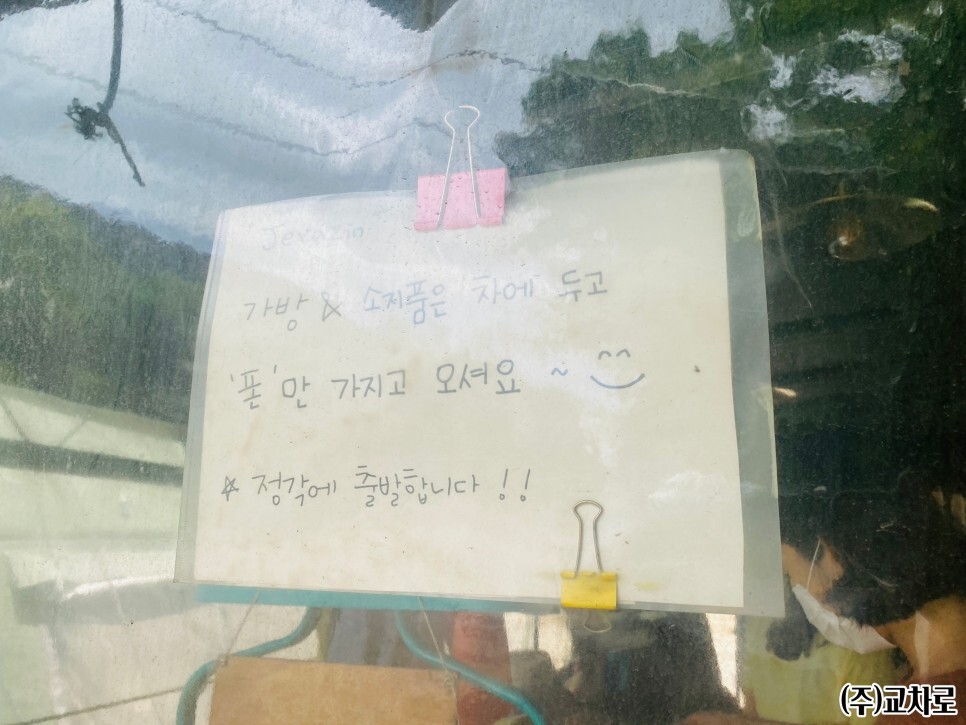 가방 & 소지품은 차에 두고
'폰'만 가지고 오셔요 ~
☆ 정각에 출발합니다 !!
(주)교차로